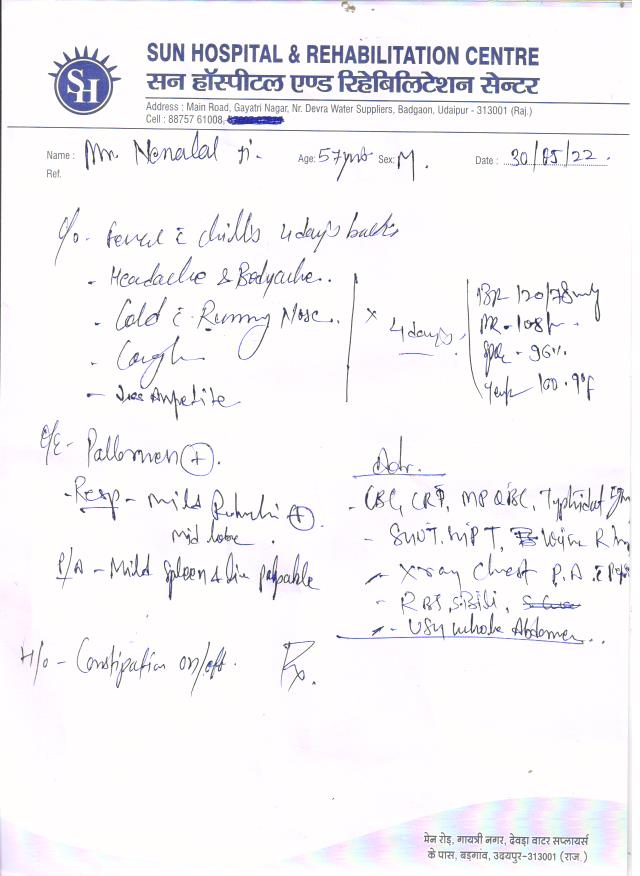 SH
SUN HOSPITAL & REHABILITATION CENTRE
सन हॉस्पीटल एण्ड रिहेबिलिटेशन सेन्टर
Address : Main Road, Gayatri Nagar, Nr. Devra Water Suppliers, Badgaon, Udaipur - 313001 (Raj.)
Cell : 88757 61008,
Name : Mr. Nonalal Ji. Age: 57yrs Sex: M. Date : 30/05/22.
Ref.
C/o - fever c chills 4 days back
- Headache & Bodyache..
- Cold c Runny Nose..
- Cough
- Appetite
x 4 days.
BP 120/78
PR - 108
SPO2 - 96%
Temp 100.9°F
O/E - Pallor +
- Resp - Mild Rhonchi +
mid lobe.
P/A - Mild Spleen & liv palpable
H/o - Constipation on/off.
Rx.
Adv.
- CBC, CRP, MP QBC, Typhidot
- SGOT, SGPT, Urine R
- Xray Chest P.A.
- RBS, S.Bili,
- USG whole Abdomen..
मेन रोड़, गायत्री नगर, देवड़ा वाटर सप्लायर्स
के पास, बड़गांव, उदयपुर-313001 (राज.)